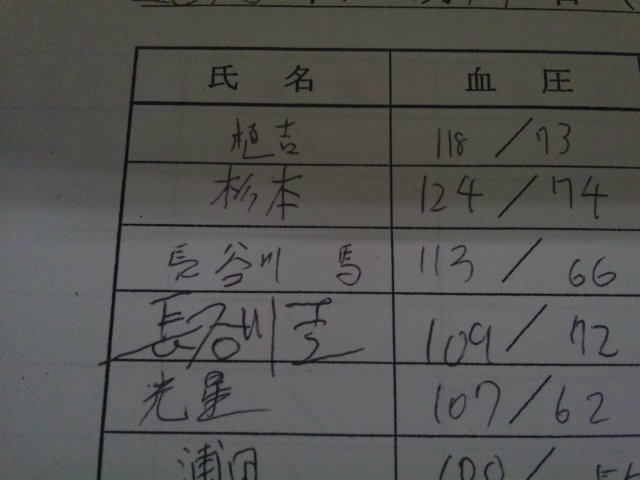 氏 名 血 圧
植吉 118 / 73
杉本 124 / 74
長谷川 馬 113 / 66
長谷川 109 / 72
光星 107 / 62
浦田 100 /